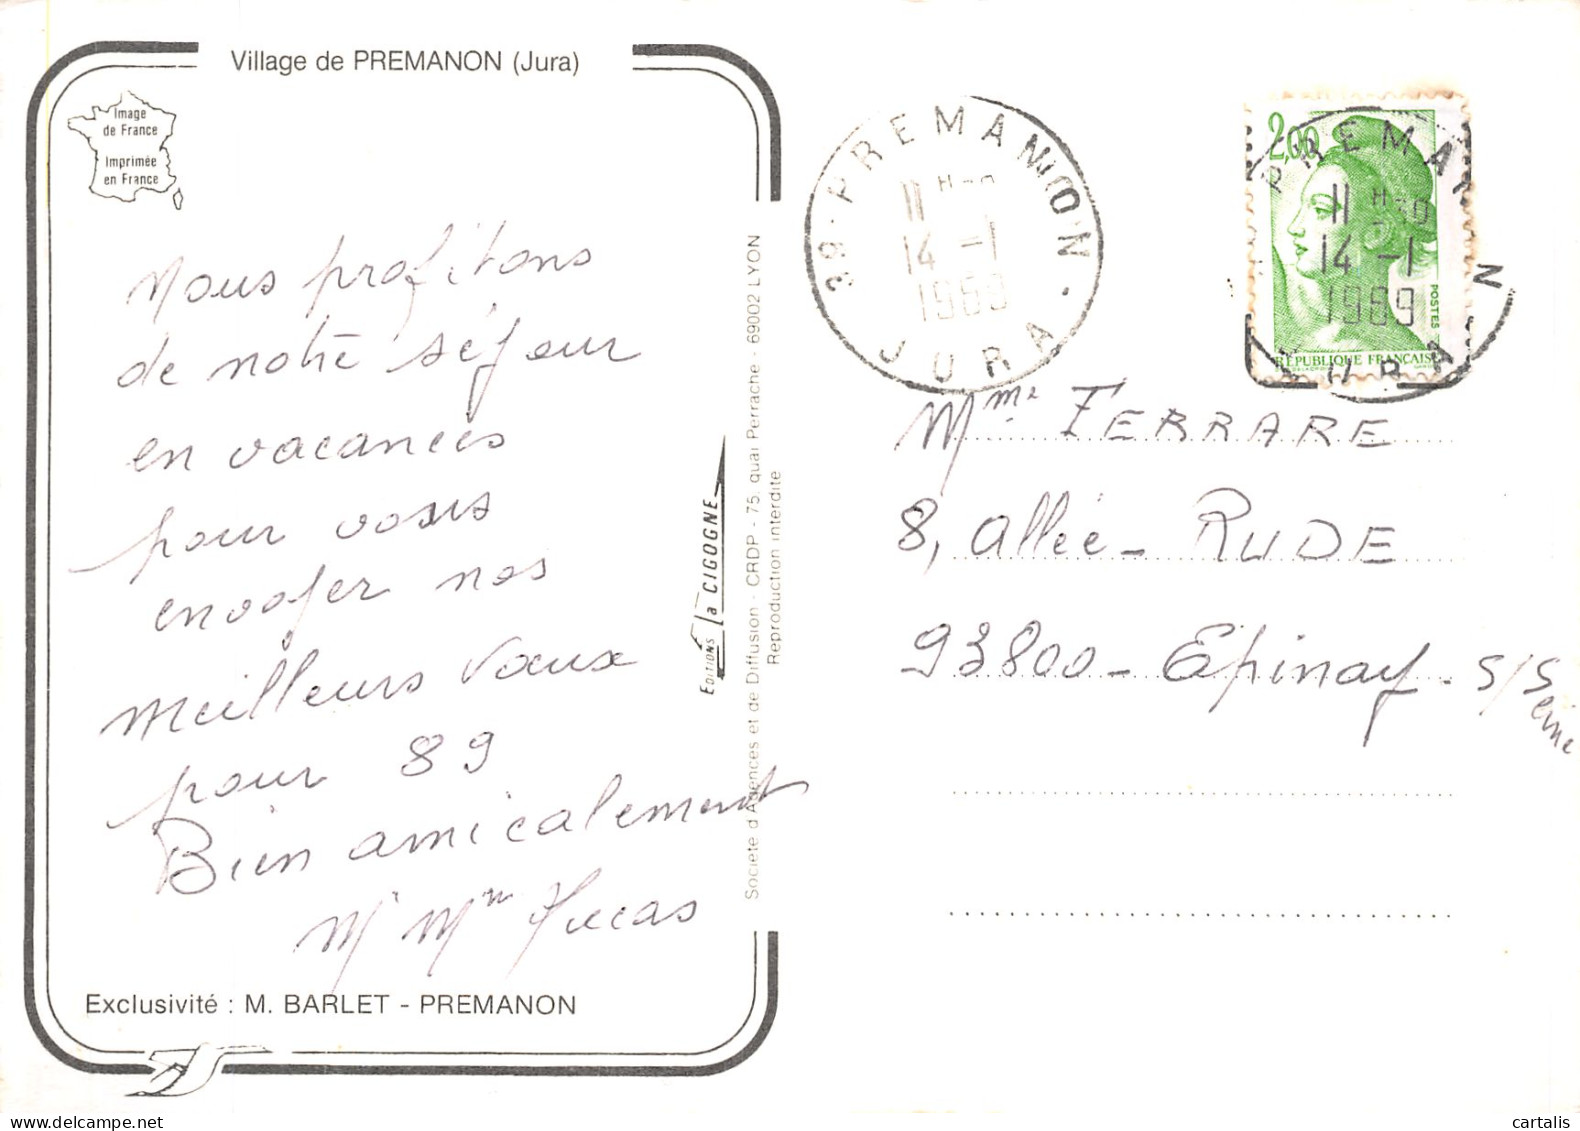 Village de PREMANON (Jura)
Image
de France
Imprimée
en France
Nous profitons
de notre séjour
en vacances
pour vous
envoyer nos
Meilleurs Vœux
pour 89
Bien amicalement
Mr Mme
Exclusivité : M. BARLET - PREMANON
EDITIONS la CIGOGNE
Société d'Agences et de Diffusion - CRDP - 75, quai Perrache - 69002 LYON
Reproduction interdite
39 - PREMANON -
11 H
14 -1
1989
JURA
2,00
POSTES
RÉPUBLIQUE FRANÇAISE
PREMAN N
11 H
14 -1
1989
URA
Mme FERRARE
8, allée - RUDE
93800 - Epinay - s/Seine
cartalis